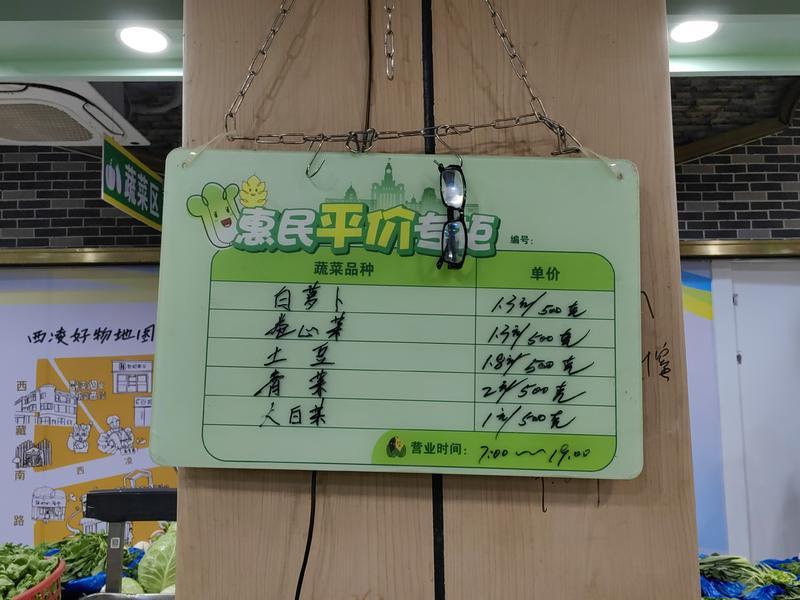 蔬菜区
惠民平价专柜
编号：
蔬菜品种 单价
白萝卜 1.5元/500克
卷心菜 1.5元/500克
土豆 1.8元/500克
青菜 2元/500克
大白菜 1元/500克
营业时间： 7:00～19:00
西凌好物地图
西藏南路
西凌